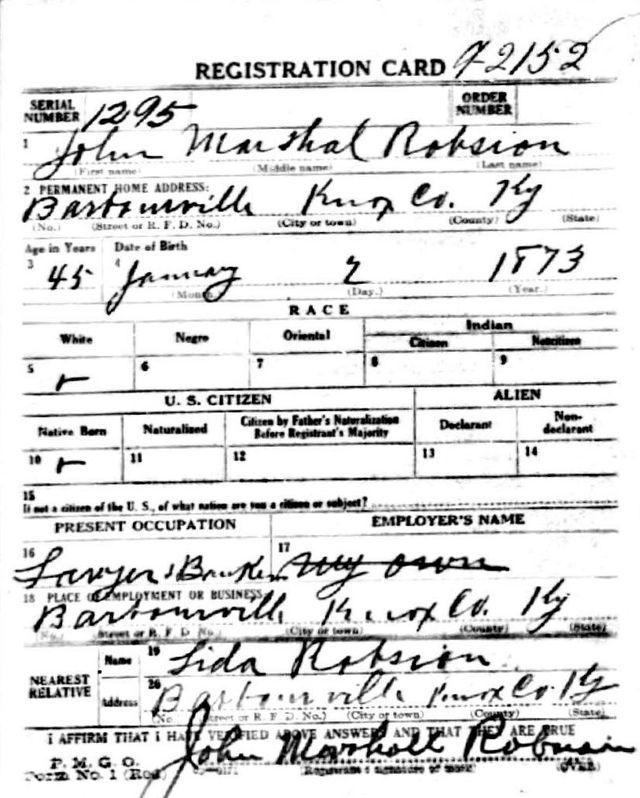 REGISTRATION CARD 92152
SERIAL NUMBER 1295 ORDER NUMBER
1 John Marshal Robsion
(First name) (Middle name) (Last name)
2 PERMANENT HOME ADDRESS:
Barbourville Knox Co. Ky
(No.) (Street or R. F. D. No.) (City or town) (County) (State)
Age in Years Date of Birth
3 45 4 January 2 1873
(Month) (Day.) (Year.)
RACE
White Negro Oriental Indian
Citizen Noncitizen
5 6 7 8 9
U. S. CITIZEN ALIEN
Native Born Naturalized Citizen by Father's Naturalization Before Registrant's Majority Declarant Non-declarant
10 11 12 13 14
15
If not a citizen of the U. S., of what nation are you a citizen or subject?
PRESENT OCCUPATION EMPLOYER'S NAME
16 Lawyer & Banker 17 My own
18 PLACE OF EMPLOYMENT OR BUSINESS
Barbourville Knox Co. Ky
(No.) (Street or R. F. D. No.) (City or town) (County) (State)
NEAREST RELATIVE Name 19 Lida Robsion
Address 20 Barbourville Knox Co. Ky
(No.) (Street or R. F. D. No.) (City or town) (County) (State)
I AFFIRM THAT I HAVE VERIFIED ABOVE ANSWERS AND THAT THEY ARE TRUE
P. M. G. O.
Form No. 1 (Red) John Marshall Robsion
(Registrant's signature or mark) (OVER)